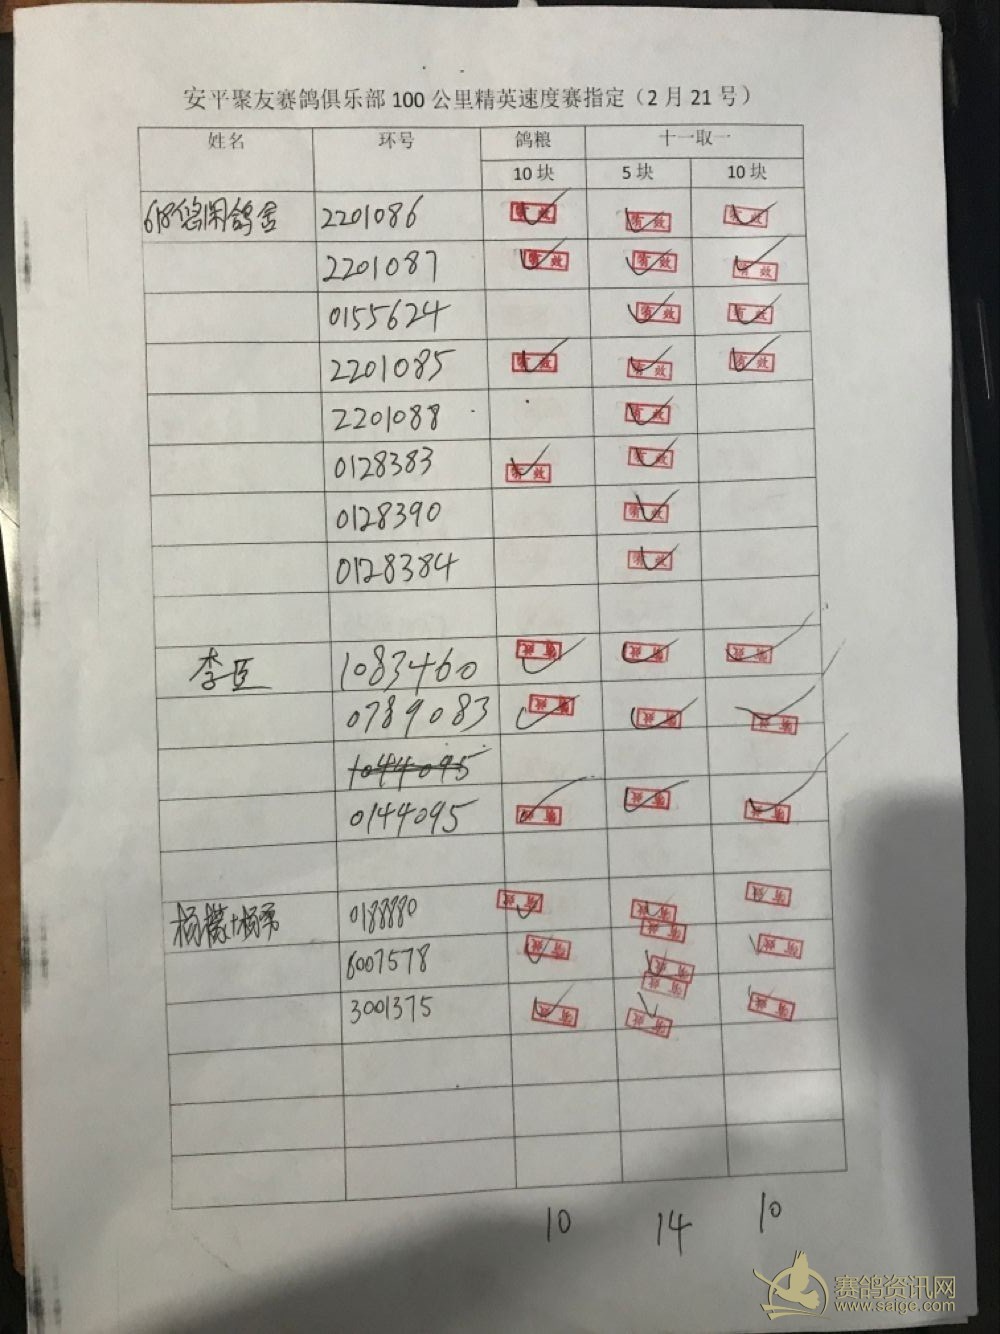 安平聚友赛鸽俱乐部 100 公里精英速度赛指定（2 月 21 号）
姓名 环号 鸽粮 十一取一
10 块 5 块 10 块
618悠闲鸽舍 2201086 有效 有效 有效
2201087 有效 有效 有效
0155624 有效 有效
2201085 有效 有效 有效
2201088 有效
0128383 有效 有效
0128390 有效
0128384 有效
李臣 1083460 有效 有效 有效
0789083 有效 有效 有效
1044095
0144095 有效 有效 有效
0188880 有效 有效 有效 有效
6007578 有效 有效 有效 有效
3001375 有效 有效 有效
10 14 10
赛鸽资讯网
www.saige.com